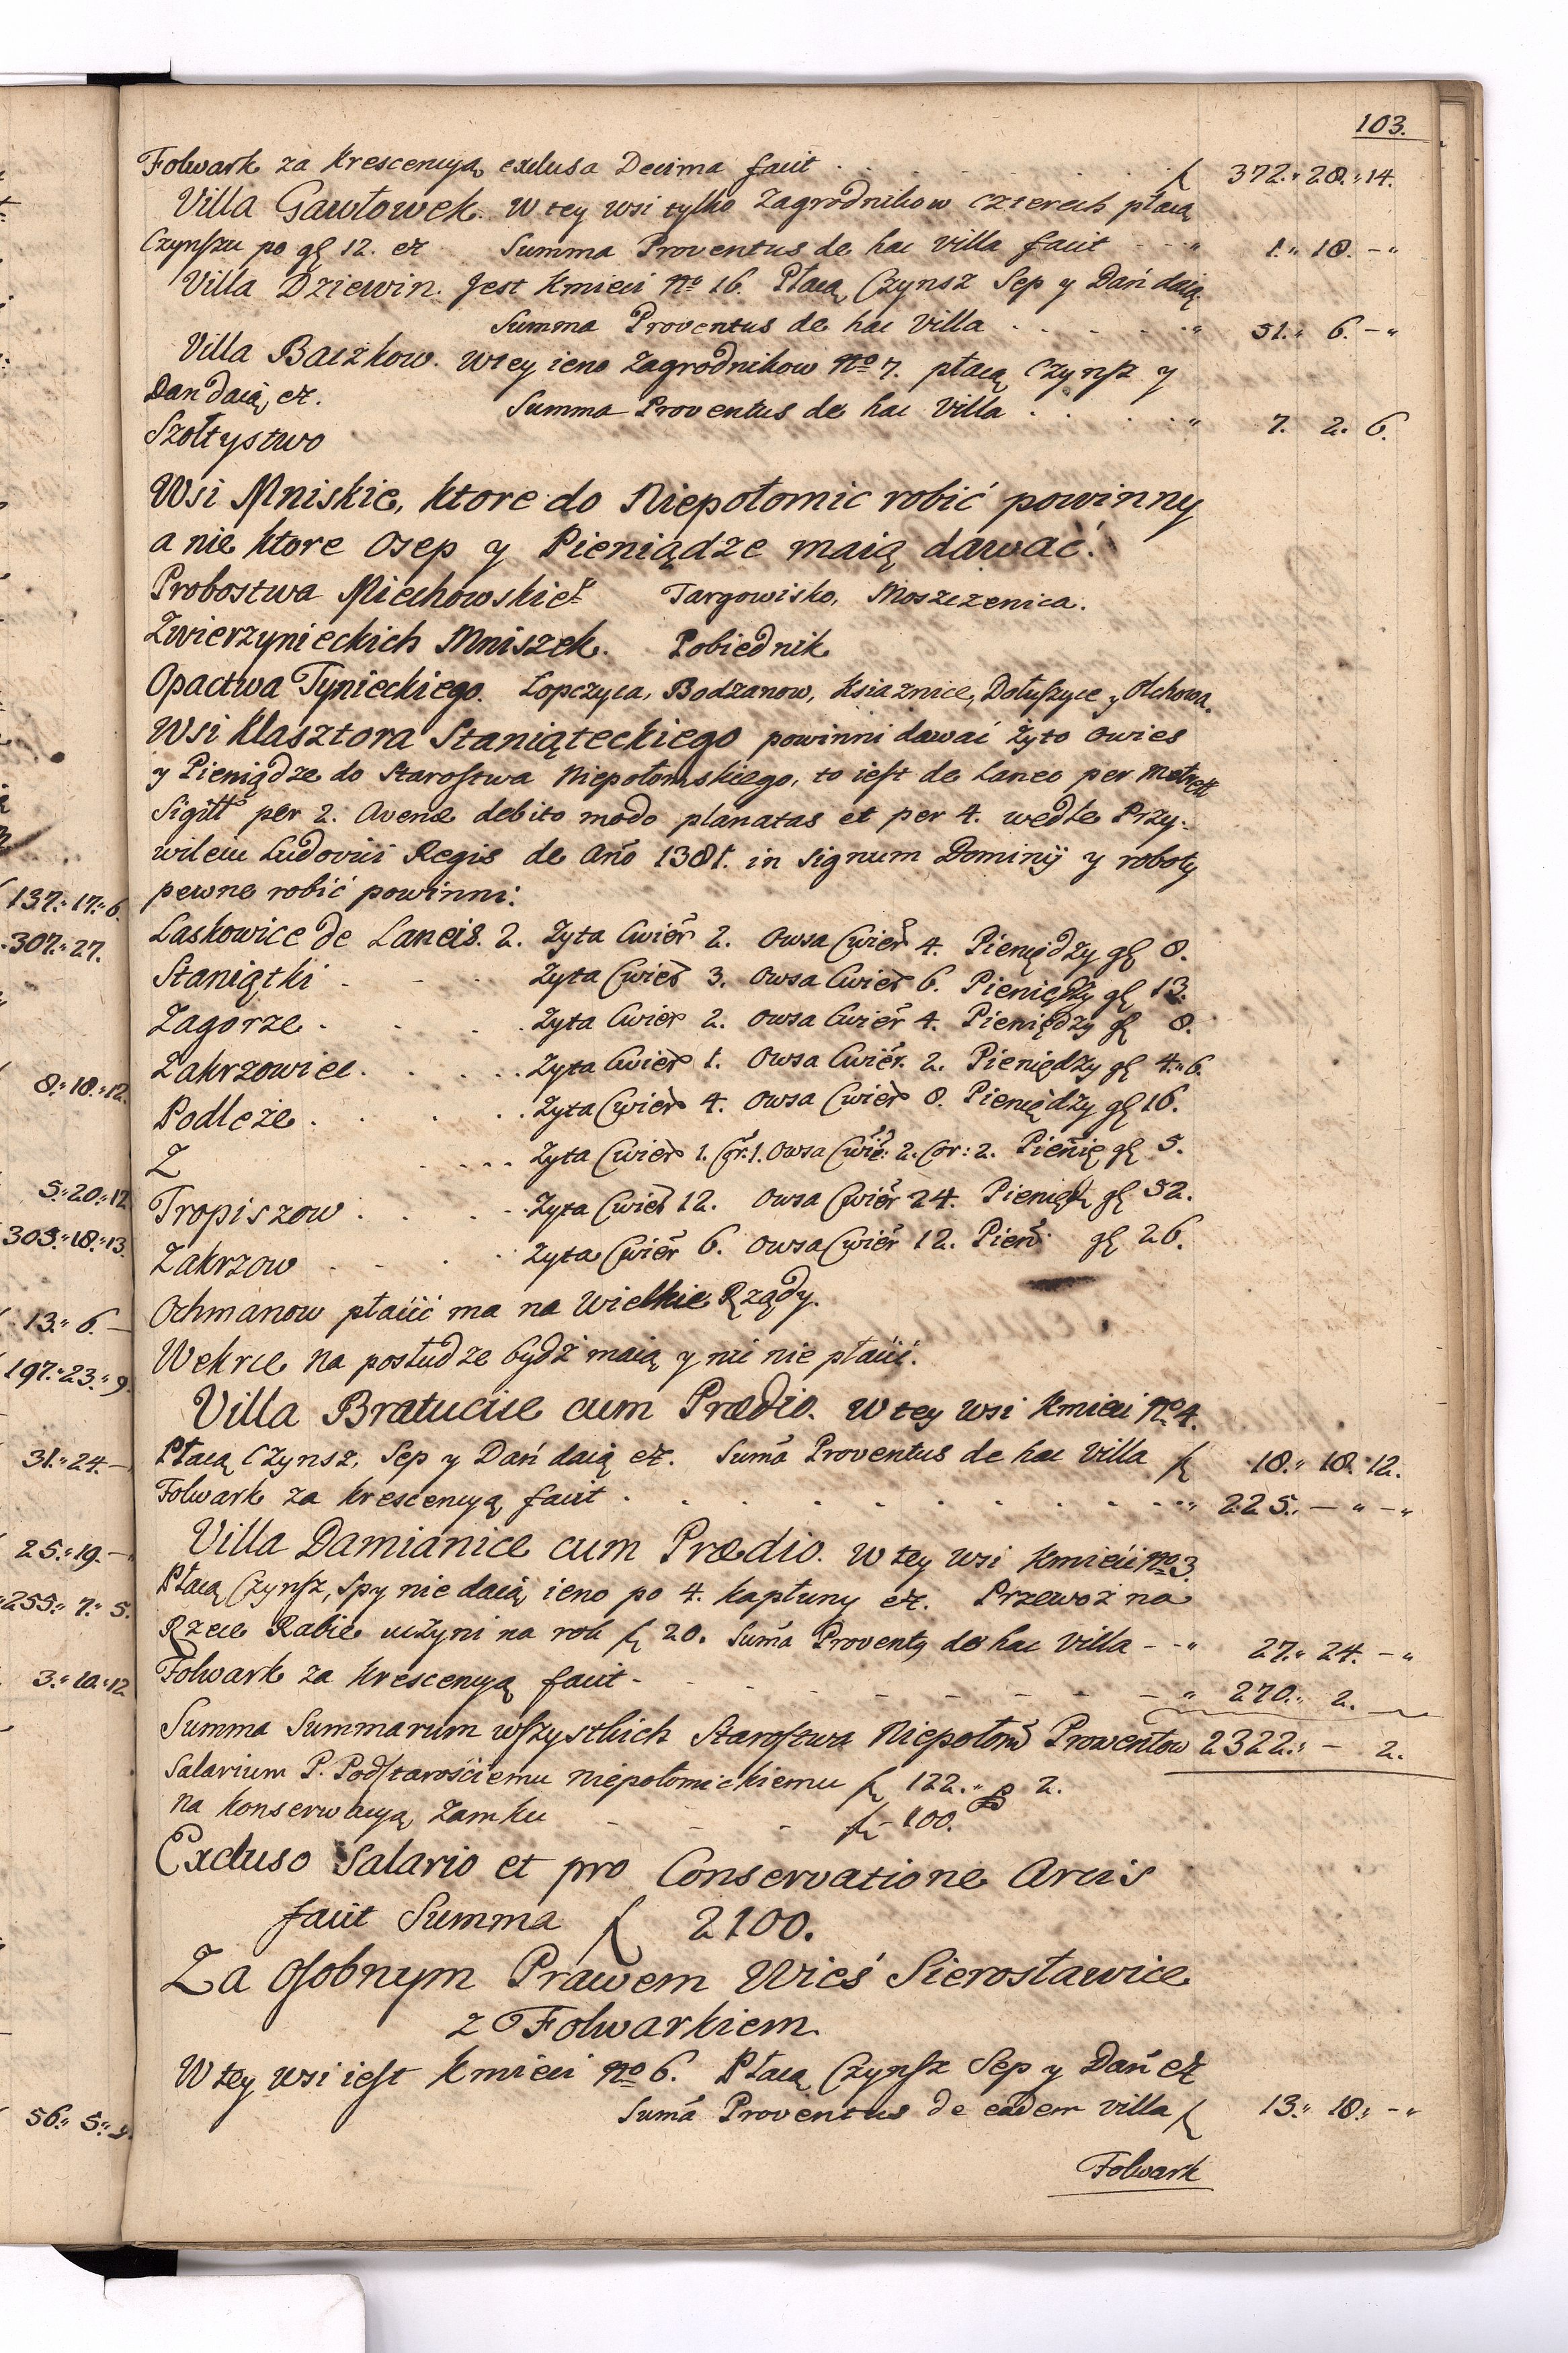 103.
Folwark za krescencyą exclusa Decima facit . . . . . . fl 372.„ 28.„ 14.
Villa Gawłowek. W tey wsi tylko Zagrodnikow czterech płacą
Czynszu po gr 12. etc. Summa Proventus de hac villa facit - - „ 1.„ 18. - „
Villa Dziewin. Jest Kmieci No 16. Płacą Czynsz Sep y Dań daią
Summa Proventus de hac villa . . . . . „ 51.„ 6. - „
Villa Baczkow. W tey ieno Zagrodnikow No 7. płacą Czynsz y
Dan daią, etc. Summa Proventus de hac Villa . . . . „ 7. 2. 6.
Szołtystwo
Wsi Mniskie, ktore do Niepołomic robić powinny
a nie ktore Osep y Pieniądze maią dawać.
Probostwa Miechowskieo Targowisko, Moszczenica.
Zwierzynieckich Mniszek. Pobiednik
Opactwa Tynieckiego. Łopczyca, Bodzanow, Ksiaznice, Dołuszyce y Olchowa.
Wsi Klasztora Staniąteckiego powinni dawać żyto owies
y Pieniądze do Starostwa Niepołomskiego, to iest de Laneo per Metret
Sigitt per 2. Avenæ debito modo planatas et per 4. wedle Przy-
wileiu Ludovici Regis de Año 1381. in signum Dominij y roboty
pewne robić powinni:
Laskowice de Laneis. 2. Zyta Cwier 2. Owsa Cwier 4. Pieniędzy gr 8.
Staniątki . - - . Zyta Cwier 3. Owsa Cwier 6. Pieniędzy gr 13.
Zagorze . . . . Zyta Cwier 2. Owsa Cwier 4. Pieniędzy gr 8.
Zakrzowiec . . . . Zyta Cwier 1. Owsa Cwier. 2. Pieniędzy gr 4.„ 6.
Podleże . . . . Zyta Cwier 4. Owsa Cwier 8. Pieniędzy gr 16.
Z . . . . Zyta Cwier 1. Cor: 1. Owsa Cwier: 2. Cor: 2. Pienię gr 5.
Tropiszow . . . . Zyta Cwier 12. Owsa Cwier 24. Pienięd gr 52.
Zakrzow . - . . Zyta Cwier 6. Owsa Cwier 12. Pień gr 26.
Ochmanow płacić ma na Wielkie Rządy.
Wekrce na posłudze bydź maią y nic nie płacić.
Villa Bratucice cum Prædio. W tey wsi Kmieci No 4.
Płacą Czynsz, Sep y Dań daią etc. Suma Proventus de hac Villa fl 18.„ 18. 12.
Folwark za krescencyą facit . . . . . . . „ 225. - „ - „
Villa Damianice cum Prædio. W tey wsi Kmieci No 3.
Płacą Czynsz, Spy nie daią, ieno po 4. kapłuny etc. Przewoz na
Rzece Rabie uczyni na rok fl 20. Suma Proventus de hac Villa - - „ 27.„ 24. - „
Folwark za krescencyą facit - - - - - - „ 270.„ 2. -
Summa Summarum wszystkich Starostwa Niepołom Proventow 2322.„ - 2.
Salarium P. Podstarościemu Niepołomickiemu fl 122.„ gr 2.
na konserwacyą Zamku - - - fl 100.
Excluso Salario et pro Conservatione Arcis
facit Summa fl 2100.
Za Osobnym Prawem Wieś Sierosławice
z Folwarkiem.
W tey wsi iest Kmieci No 6. Płacą Czynsz Sep y Dań etc
Suma Proventus de eadem villa fl 13.„ 18.„ - „
Folwark
137.„ 17.„ 6.
307.„ 27.
8.„ 18.„ 12.
5.„ 20.„ 12
303.„ 18.„ 13.
13.„ 6. -
197.„ 23.„ 9.
31.„ 24. -
25.„ 19. -
255.„ 7.„ 5.
3.„ 10.„ 12
56.„ 5.„ 9.